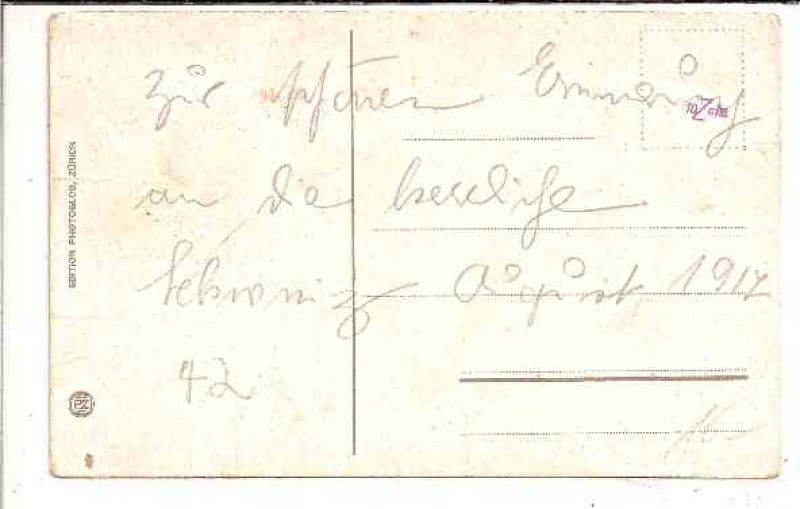 Zur schönen Erinnerung
an die herrliche
Schweiz August 1917
42
EDITION PHOTOGLOB, ZÜRICH
PZ